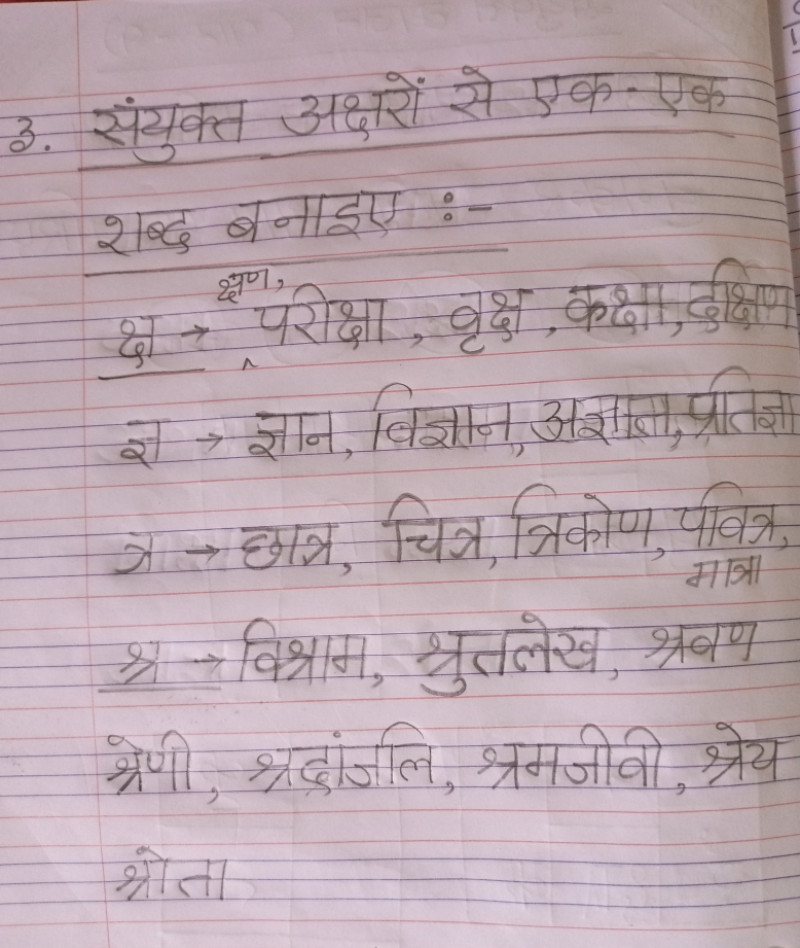 3. संयुक्त अक्षरों से एक-एक
शब्द बनाइए :-
क्षण,
क्ष → परीक्षा, वृक्ष, कक्षा, दक्षिण
ज्ञ → ज्ञान, विज्ञान, अज्ञात, प्रतिज्ञा
त्र → छात्र, चित्र, त्रिकोण, पवित्र,
मात्रा
श्र → विश्राम, श्रुतलेख, श्रवण
श्रेणी, श्रद्धांजलि, श्रमजीवी, श्रेय
श्रोता